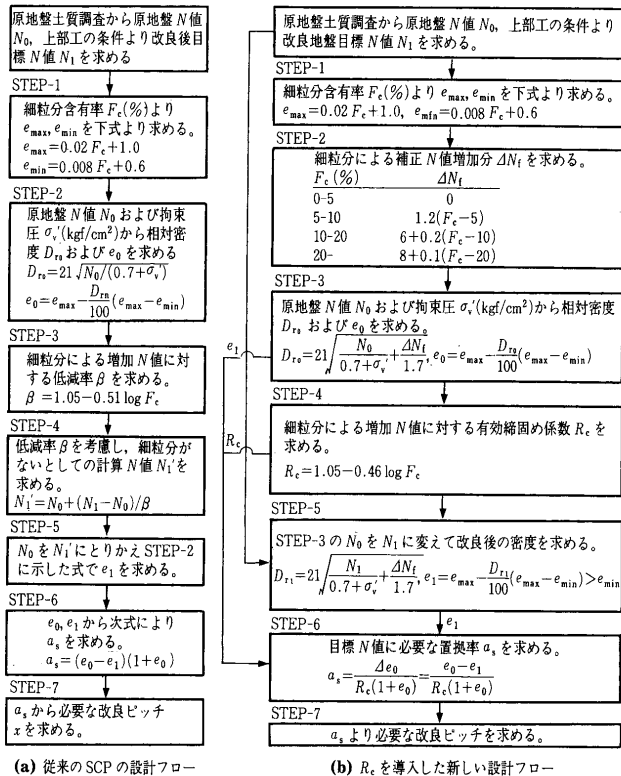 原地盤土質調査から原地盤 N 値
N₀, 上部工の条件より改良後目
標 N 値 N₁ を求める
STEP-1
細粒分含有率 F_c(%)より
e_max, e_min を下式より求める。
e_max=0.02 F_c+1.0
e_min=0.008 F_c+0.6
STEP-2
原地盤 N 値 N₀ および拘束
圧 σ_v′(kgf/cm²)から相対密
度 D_r₀ および e₀ を求める
D_r₀=21√N₀/(0.7+σ_v′)
e₀=e_max−D_r₀/100(e_max−e_min)
STEP-3
細粒分による増加 N 値に対
する低減率 β を求める。
β=1.05−0.51 log F_c
STEP-4
低減率 β を考慮し,細粒分が
ないとしての計算 N 値 N₁′を
求める。
N₁′=N₀+(N₁−N₀)/β
STEP-5
N₀ を N₁′にとりかえ STEP-2
に示した式で e₁ を求める。
STEP-6
e₀, e₁ から次式により
a_s を求める。
a_s=(e₀−e₁)(1+e₀)
STEP-7
a_s から必要な改良ピッチ
x を求める。
(a) 従来の SCP の設計フロー
原地盤土質調査から原地盤 N 値 N₀, 上部工の条件より
改良地盤目標 N 値 N₁ を求める。
STEP-1
細粒分含有率 F_c(%)より e_max, e_min を下式より求める。
e_max=0.02 F_c+1.0, e_min=0.008 F_c+0.6
STEP-2
細粒分による補正 N 値増加分 ΔN_f を求める。
F_c(%) ΔN_f
0-5 0
5-10 1.2(F_c−5)
10-20 6+0.2(F_c−10)
20- 8+0.1(F_c−20)
STEP-3
原地盤 N 値 N₀ および拘束圧 σ_v′(kgf/cm²)から相対密度
D_r₀ および e₀ を求める。
D_r₀=21√N₀/(0.7+σ_v′)+ΔN_f/1.7, e₀=e_max−D_r₀/100(e_max−e_min)
e₁
STEP-4
細粒分による増加 N 値に対する有効締固め係数 R_c を
求める。
R_c=1.05−0.46 log F_c
R_c
STEP-5
STEP-3 の N₀ を N₁ に変えて改良後の密度を求める。
D_r₁=21√N₁/(0.7+σ_v′)+ΔN_f/1.7, e₁=e_max−D_r₁/100(e_max−e_min)>e_min
e₁
STEP-6
目標 N 値に必要な置換率 a_s を求める。
a_s=Δe₀/R_c(1+e₀)=e₀−e₁/R_c(1+e₀)
STEP-7
a_s より必要な改良ピッチを求める。
(b) R_c を導入した新しい設計フロー